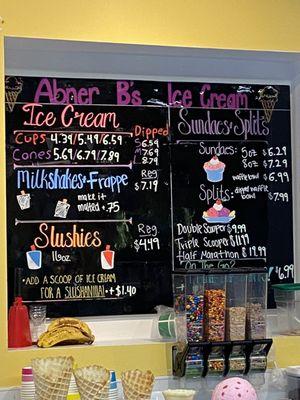 Abner B's Ice Cream
Ice Cream
Cups 4.39/5.49/6.59
Cones 5.69/6.79/7.89
Dipped
S 6.59
M 7.69
L 8.79
Milkshakes + Frappe
Reg
$7.19
make it
malted +.75
Slushies
16oz
Reg
$4.49
+ ADD A SCOOP OF ICE CREAM
FOR A SLUSHANILLA! + $1.40
Sundaes + Splits
Sundaes:
5oz $6.29
8oz $7.29
waffle bowl $6.99
Splits:
dipped waffle bowl $7.99
Double Scooper $9.99
Triple Scooper $11.99
Half Marathon $19.99
On The Go?
$6.99